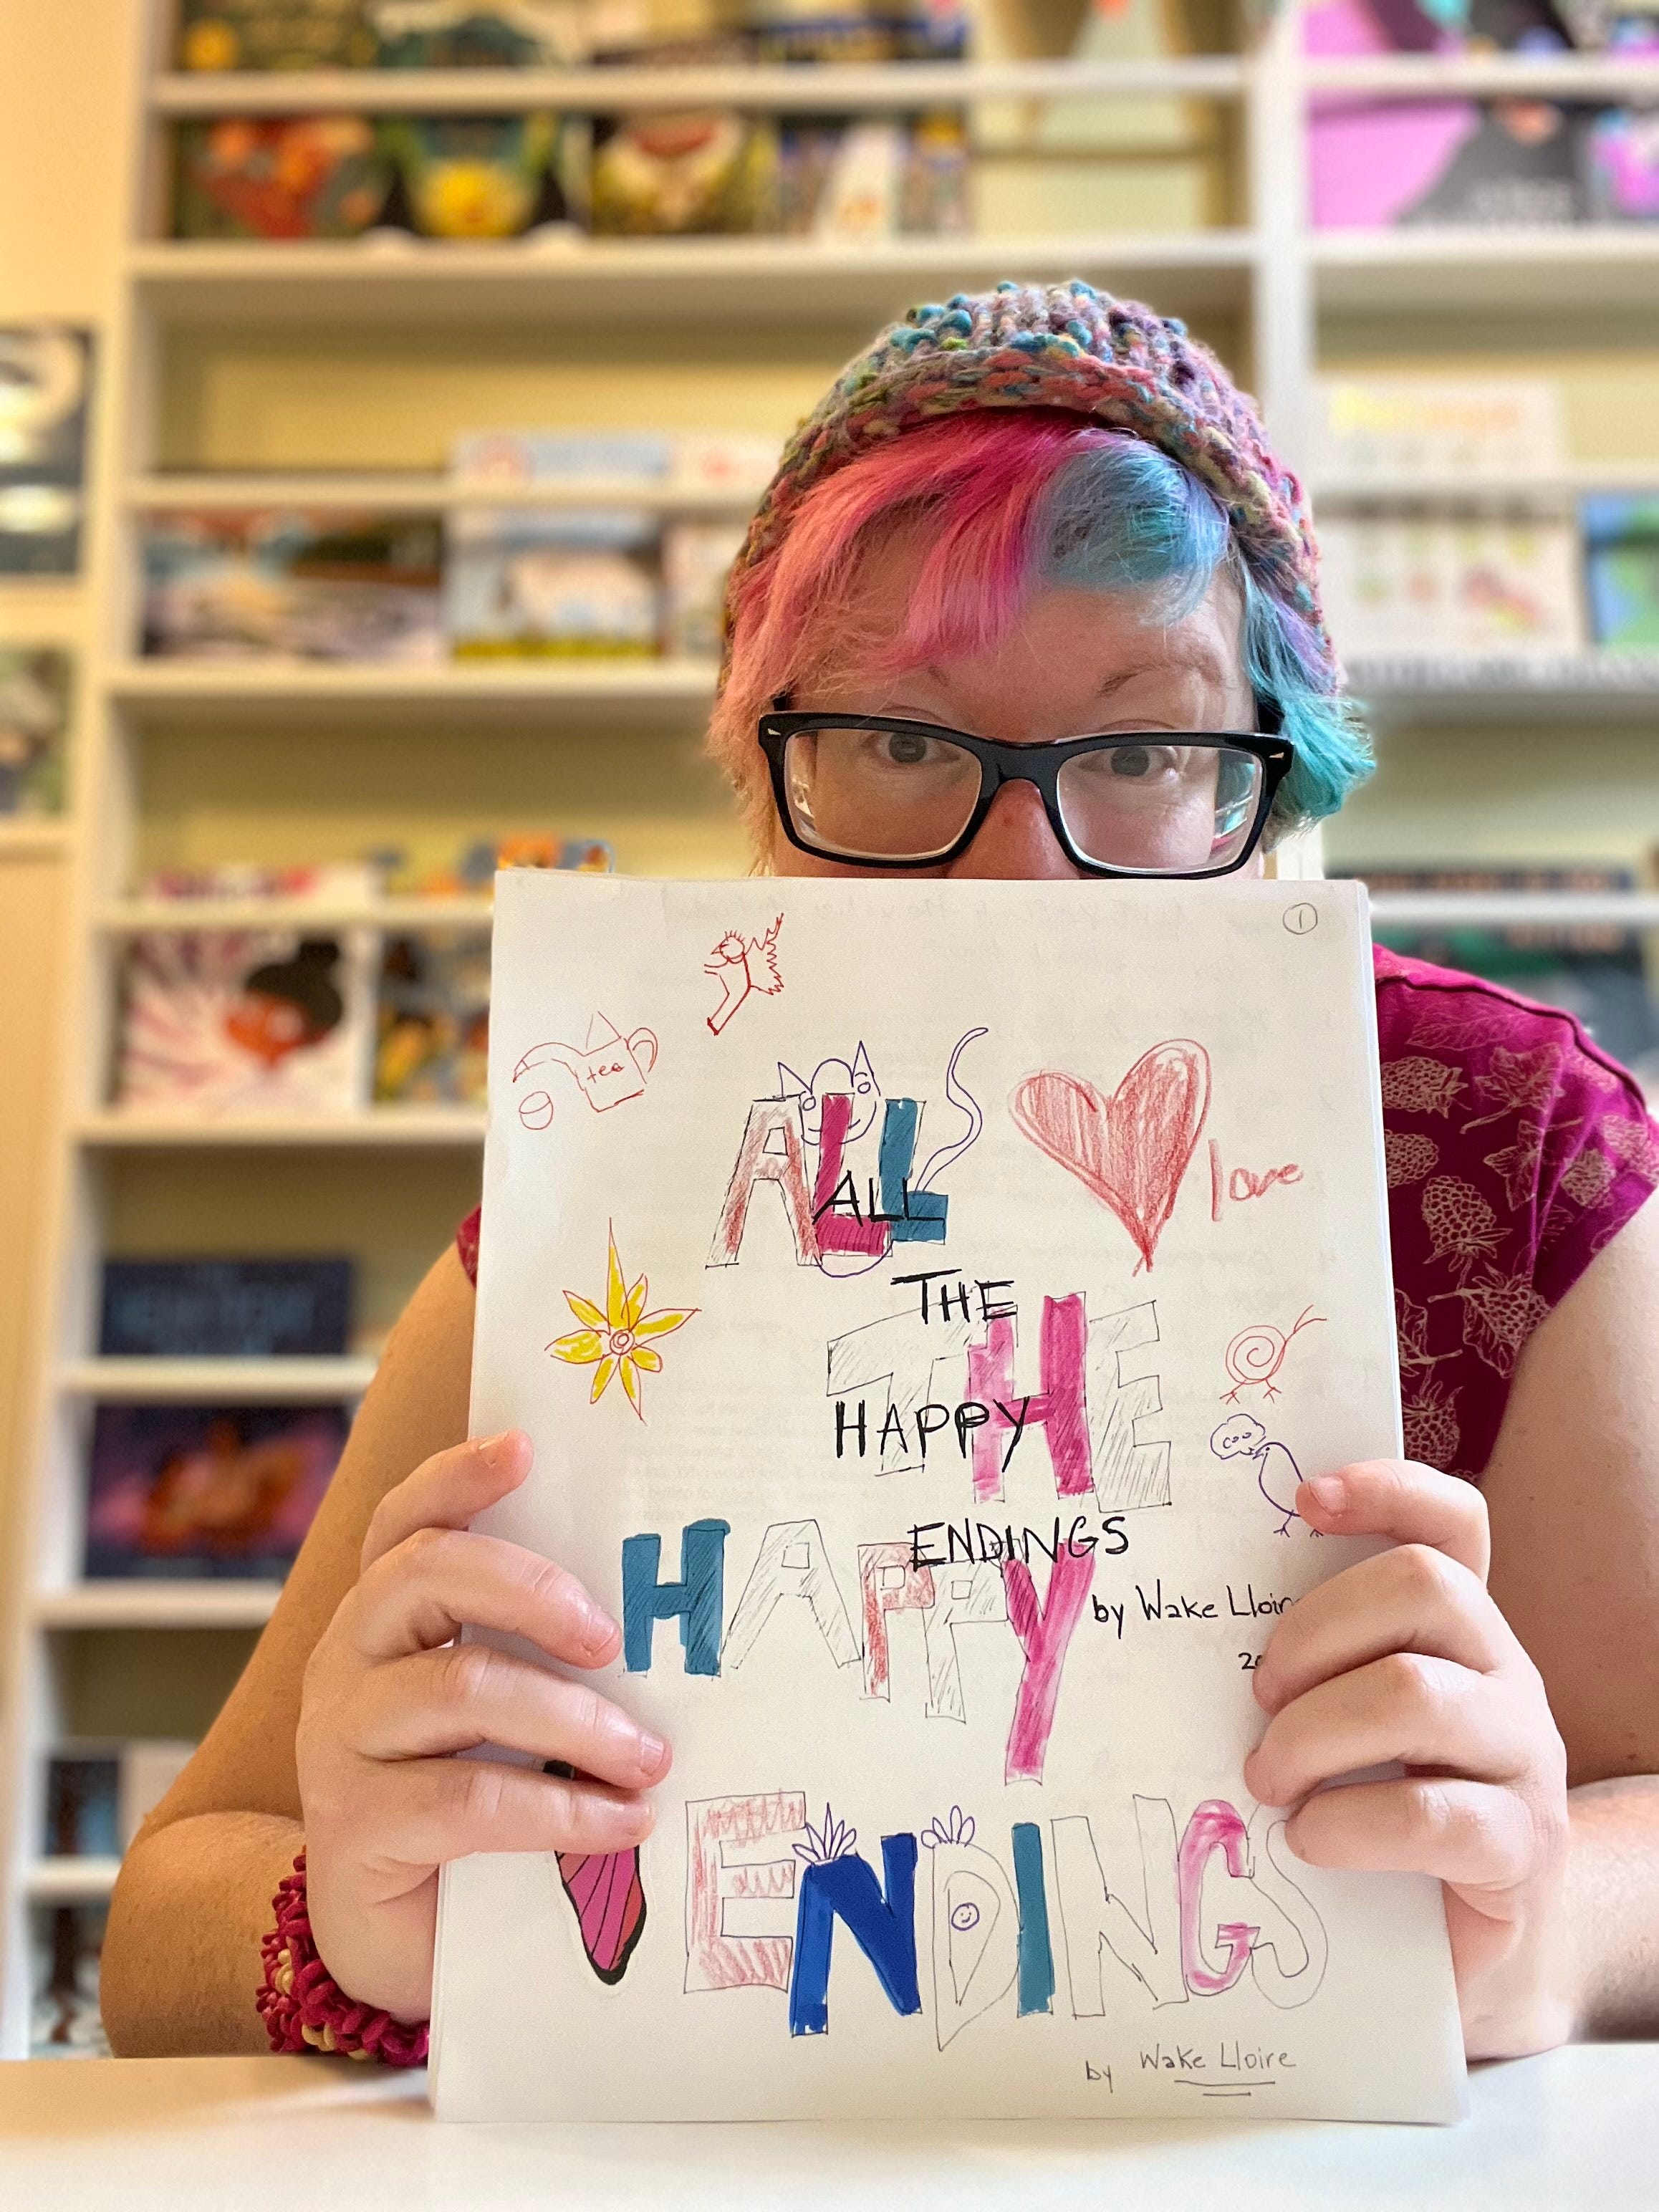 ①
tea
ALL
ALL
love
THE
THE
HAPPY
coo
ENDINGS
HAPPY
by Wake
ENDINGS
by Wake Lloire